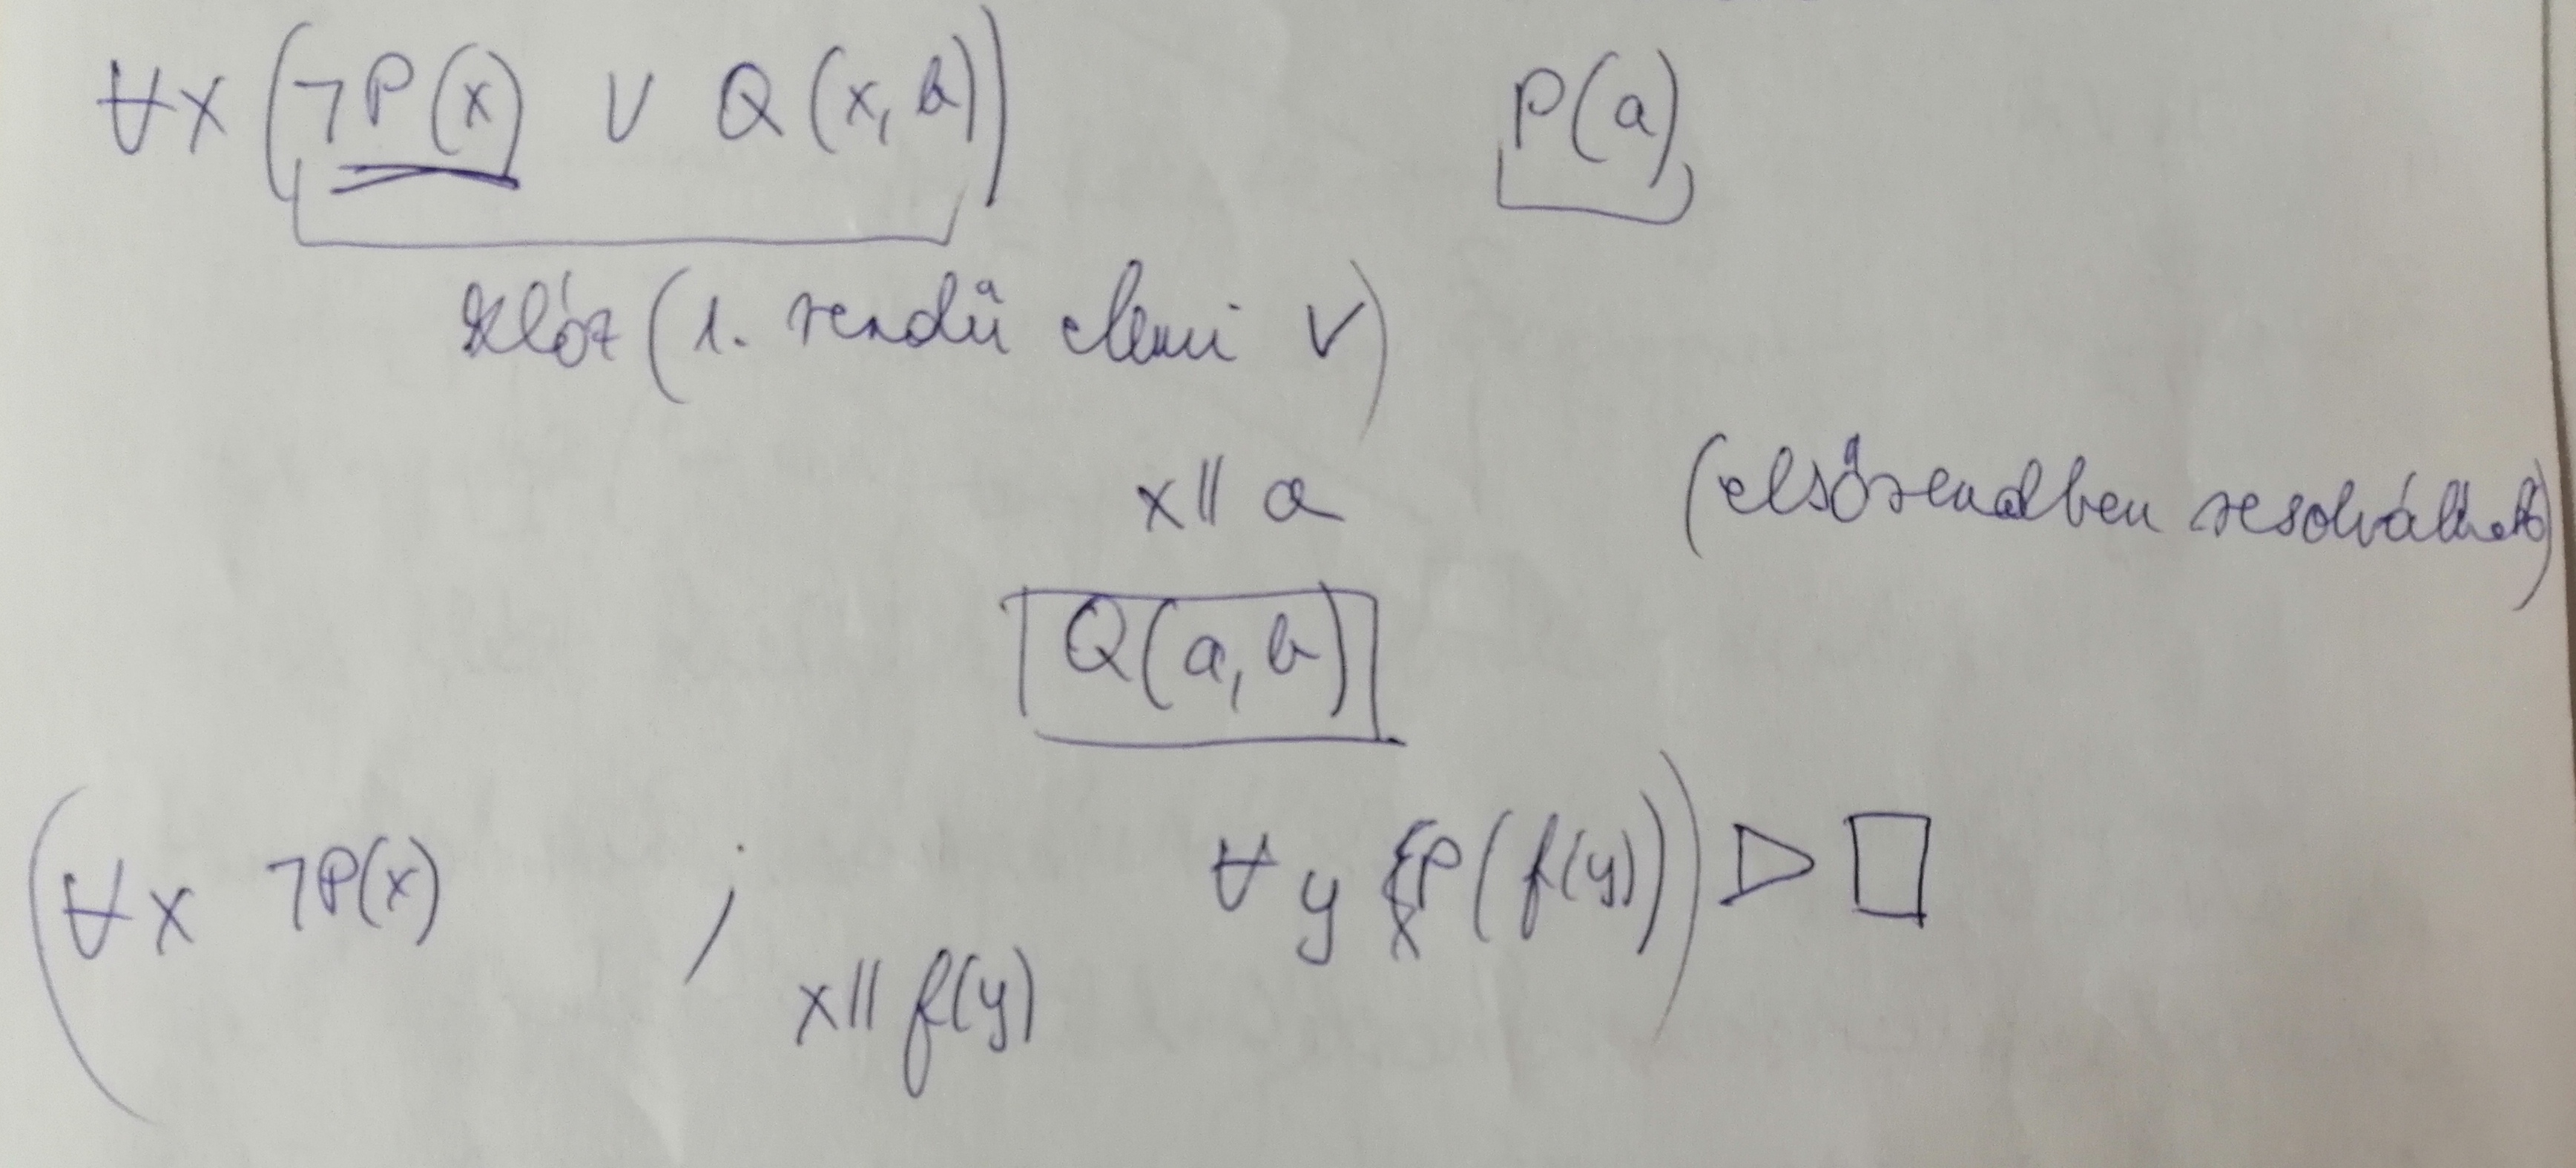 ∀x (¬P(x) ∨ Q(x, b)) P(a)
Klóz (1. rendű elemi ∨)
x || a (elsőrendben rezolválható)
Q(a, b)
(∀x ¬P(x) ; x || f(y) ∀y P(f(y))) ▷ □